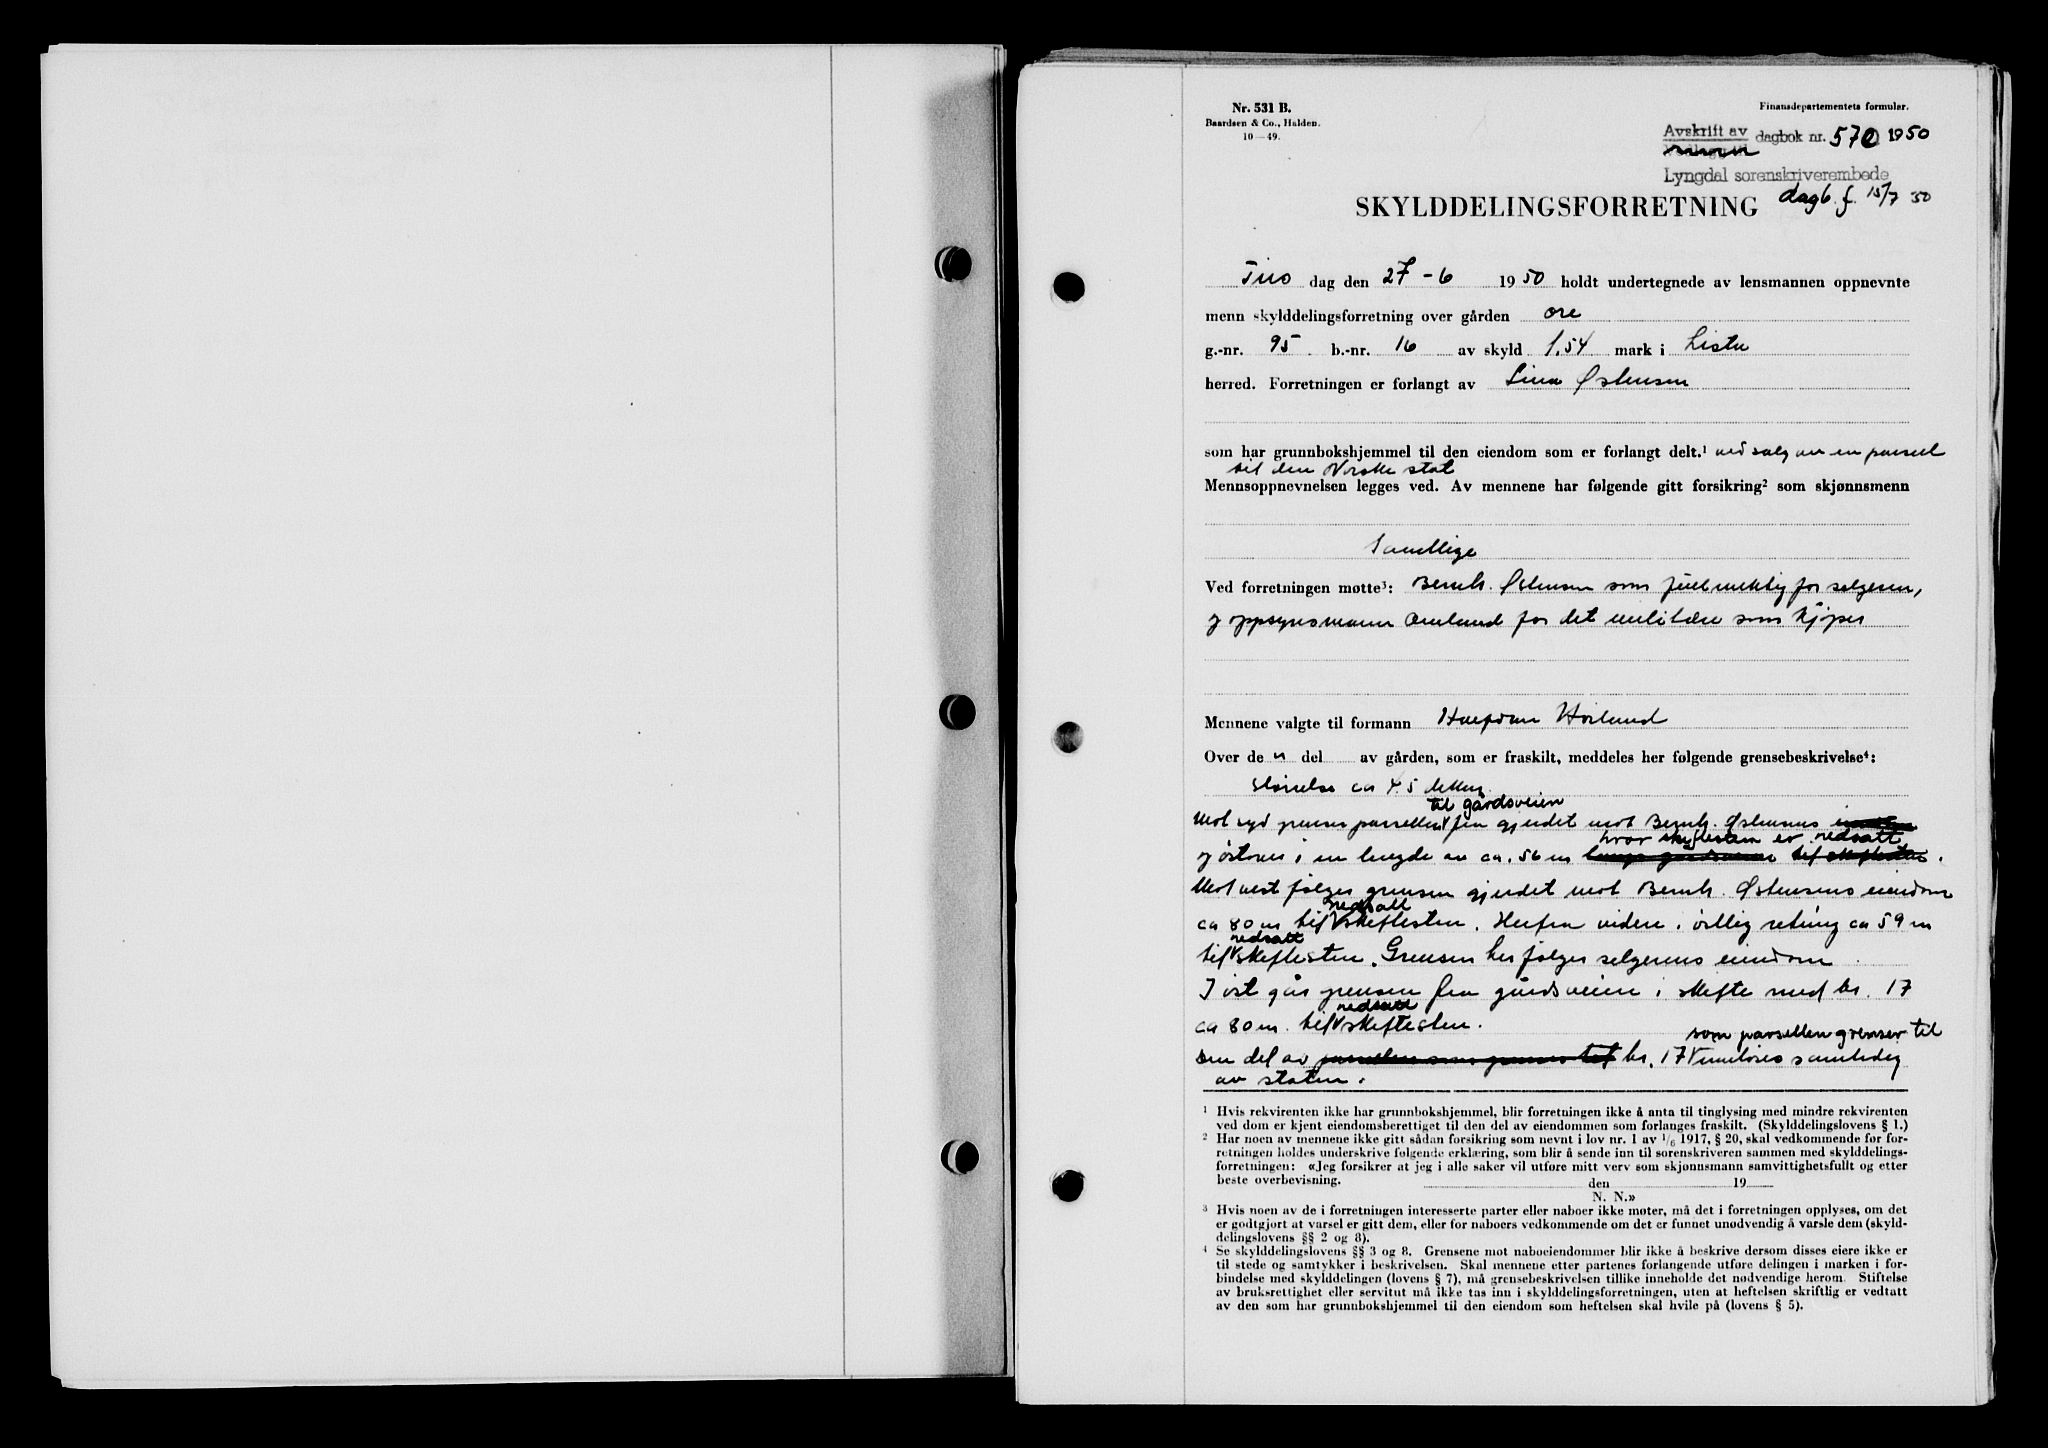 Nr. 531 B.
Baardsen & Co., Halden.
10—49.
Finansdepartementets formular.
Avskrift av dagbok nr. 570 1950
Lyngdal sorenskriverembede
dagb. f. 15/7 50
SKYLDDELINGSFORRETNING
Tirs dag den 27-6 1950 holdt undertegnede av lensmannen oppnevnte
menn skylddelingsforretning over gården Ore
g.-nr. 95 b.-nr. 16 av skyld 1.54 mark i Lista
herred. Forretningen er forlangt av Østensen
som har grunnbokshjemmel til den eiendom som er forlangt delt.¹ ved salg av en parsel
til den Norske stat
Mennsoppnevnelsen legges ved. Av mennene har følgende gitt forsikring² som skjønnsmenn
Samtlige
Ved forretningen møtte³: Bernh. Østensen som fullmektig for selgeren,
og oppsynsmann Omlund for det militære som kjøper
Mennene valgte til formann Halfdan
Over de n del av gården, som er fraskilt, meddeles her følgende grensebeskrivelse⁴:
Størrelse ca 4,5 dekar
til gårdsveien
Mot syd grenser parsellen fra gjerdet mot Bernh. Østensens
hvor skiftesten er nedsatt
og østover i en lengde av ca. 56 m langs gårdsveien til skiftesten.
Mot vest følger grensen gjerdet mot Bernh. Østensens eiendom
nedsatt
ca 80 m til skiftesten. Herfra videre i østlig retning ca 59 m
nedsatt
til skiftesten. Grensen her følger selgerens eiendom
I øst går grensen fra gårdsveien i skifte med br. 17
nedsatt
ca 80 m. til skiftesten.
som parsellen grenser til
Den del av parsellen som grenser til br. 17 innløses samtidig
av staten.
¹ Hvis rekvirenten ikke har grunnbokshjemmel, blir forretningen ikke å anta til tinglysing med mindre rekvirenten
ved dom er kjent eiendomsberettiget til den del av eiendommen som forlanges fraskilt. (Skylddelingslovens § 1.)
² Har noen av mennene ikke gitt sådan forsikring som nevnt i lov nr. 1 av 1/6 1917, § 20, skal vedkommende før for-
retningen holdes underskrive følgende erklæring, som blir å sende inn til sorenskriveren sammen med skylddelings-
forretningen: «Jeg forsikrer at jeg i alle saker vil utføre mitt verv som skjønnsmann samvittighetsfullt og etter
beste overbevisning. den 19
N. N.»
³ Hvis noen av de i forretningen interesserte parter eller naboer ikke møter, må det i forretningen opplyses, om det
er godtgjort at varsel er gitt dem, eller for naboers vedkommende om det er funnet unødvendig å varsle dem (skyld-
delingslovens §§ 2 og 8).
⁴ Se skylddelingslovens §§ 3 og 8. Grensene mot naboeiendommer blir ikke å beskrive dersom disses eiere ikke er
til stede og samtykker i beskrivelsen. Skal mennene etter partenes forlangende utføre delingen i marken i for-
bindelse med skylddelingen (lovens § 7), må grensebeskrivelsen tillike inneholde det nødvendige herom. Stiftelse
av bruksrettighet eller servitut må ikke tas inn i skylddelingsforretningen, uten at heftelsen skriftlig er vedtatt
av den som har grunnbokshjemmel til den eiendom som heftelsen skal hvile på (lovens § 5).